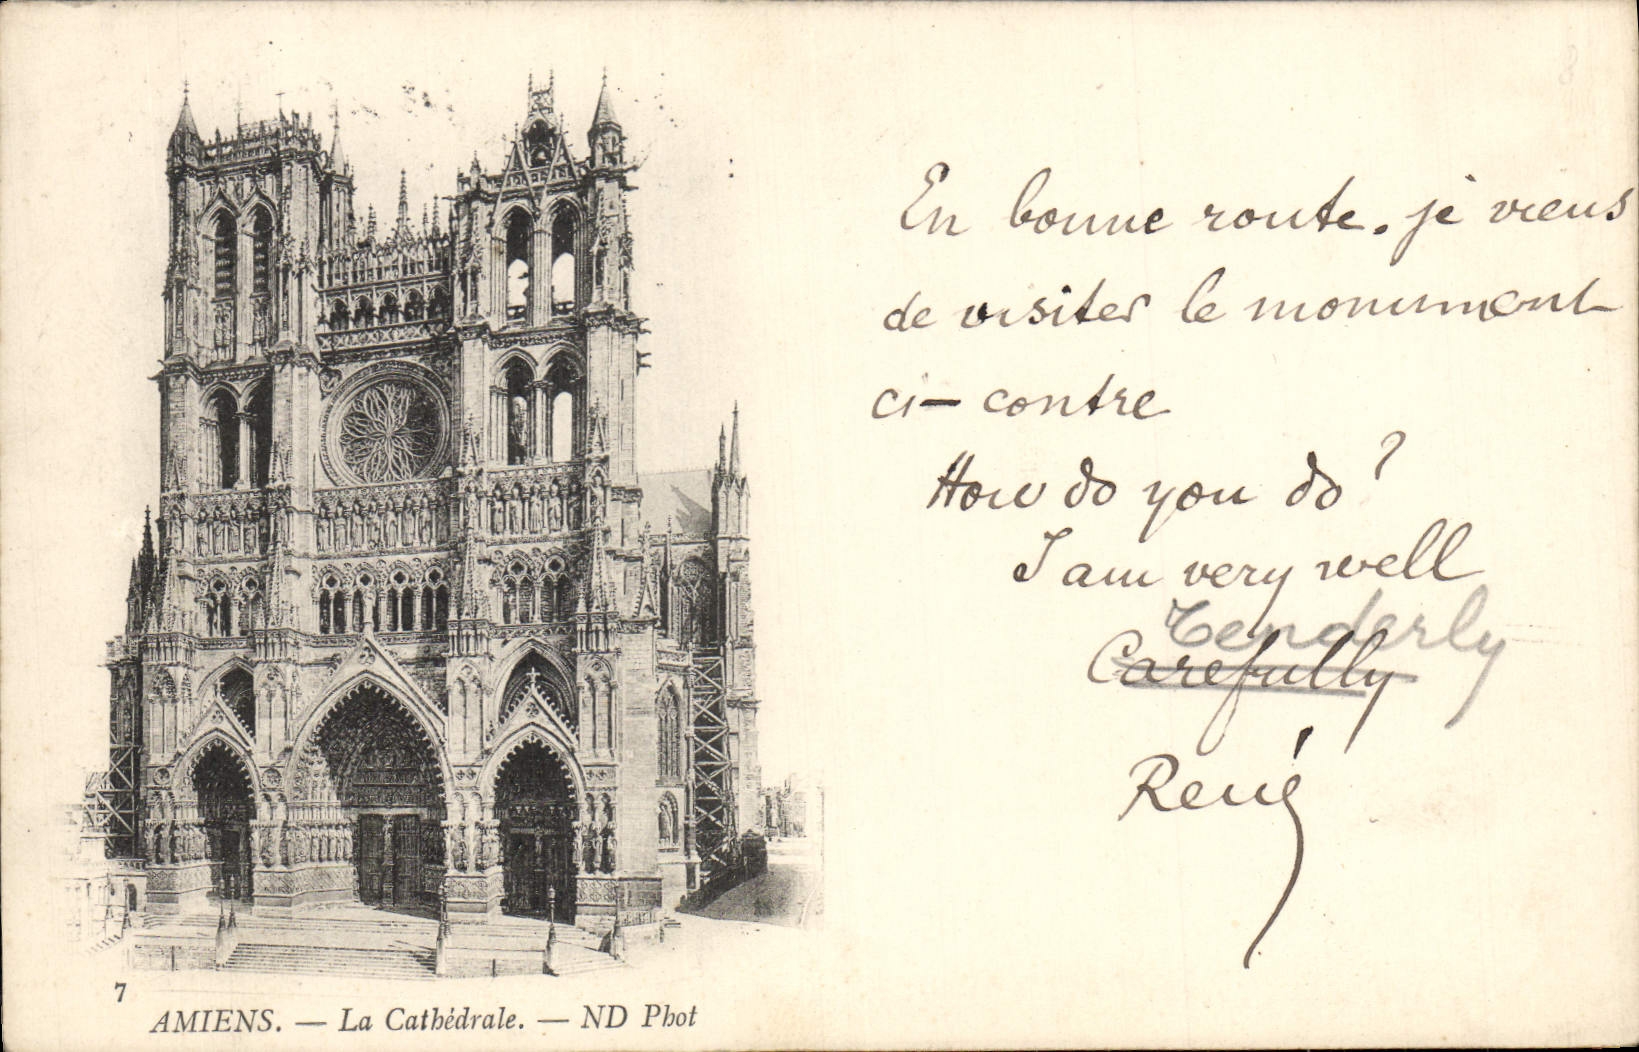 En bonne route. je viens
de visiter le monument
ci-contre
How do you do?
I am very well
Tenderly
Carefully
René
7
AMIENS. — La Cathédrale. — ND Phot